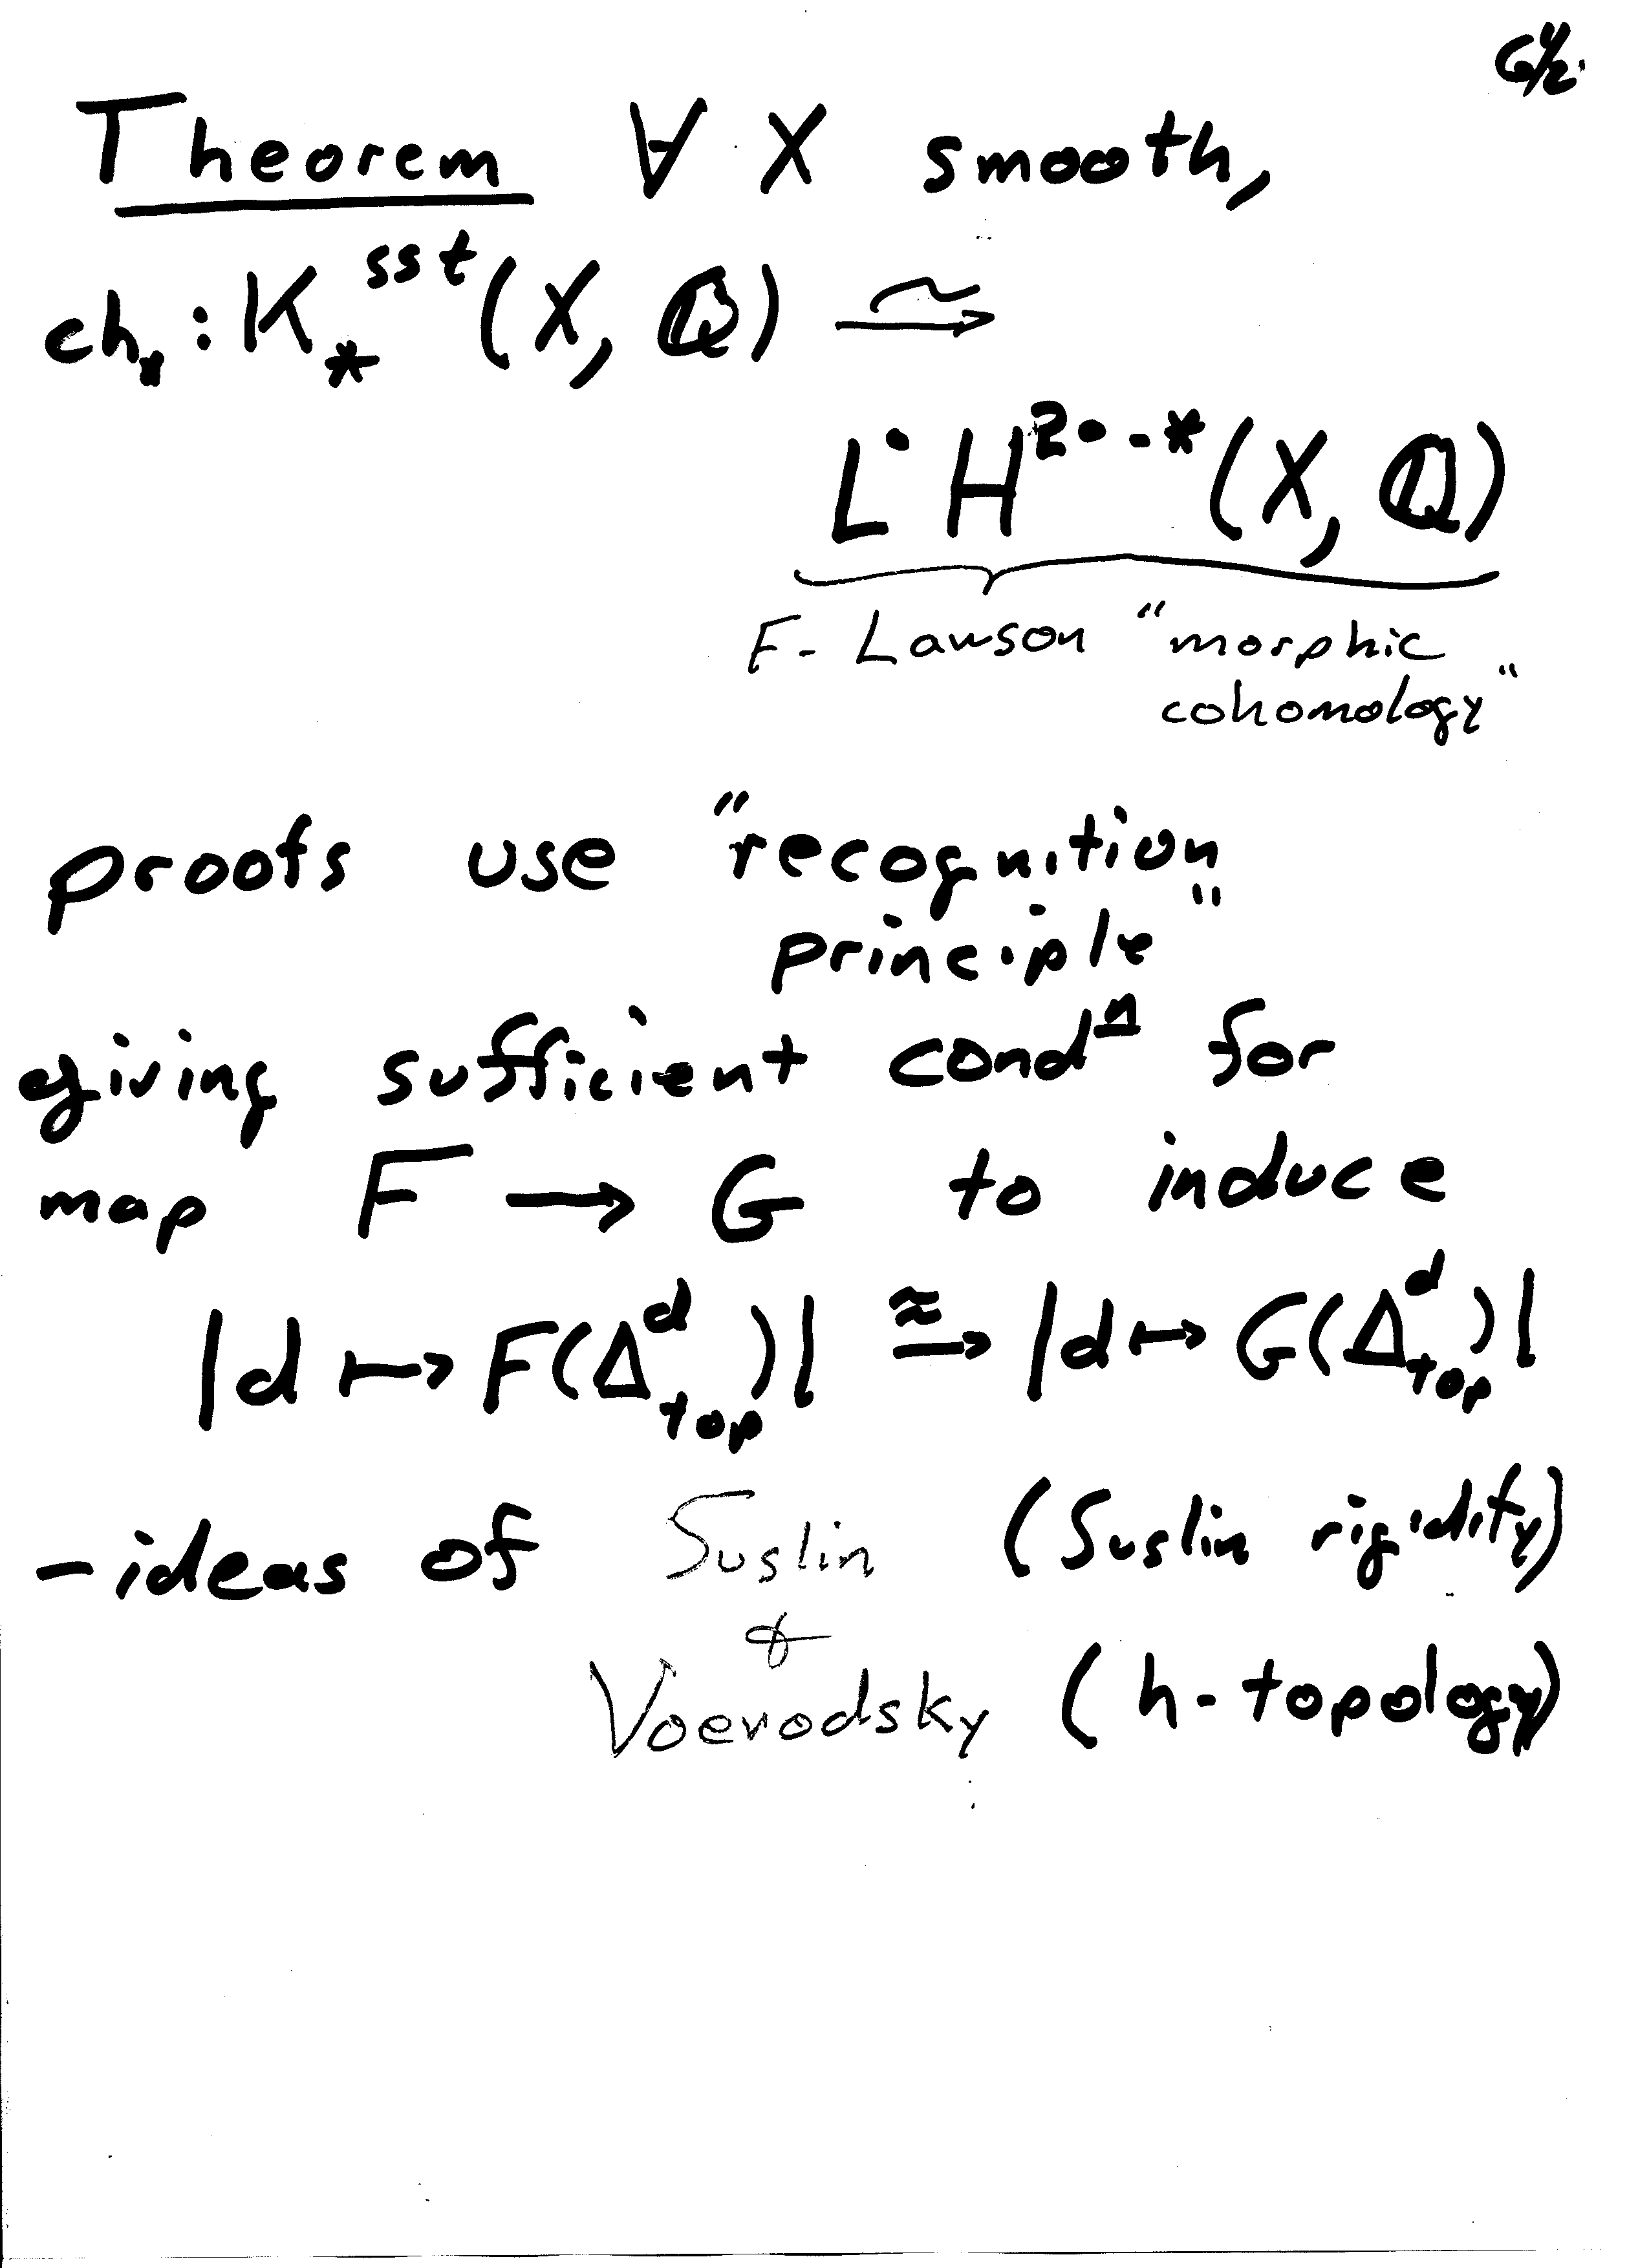 6½.
Theorem ∀ X smooth,
ch_* : K_*^{sst}(X, ℚ) ⥲
L^• H^{2•-*}(X, ℚ)
F- Lawson "morphic
cohomology"
proofs use "recognition
principle"
giving sufficient cond^n for
map F → G to induce
|d ↦ F(Δ^d_{top})| ≃→ |d ↦ G(Δ^d_{top})|
-ideas of Suslin (Suslin rigidity)
&
Voevodsky (h-topology)